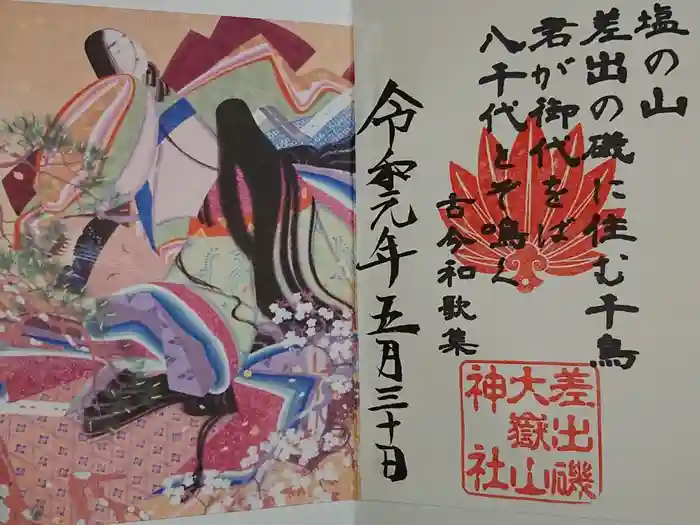 塩の山
差出の磯に住む千鳥
君が御代をば
八千代とぞ鳴く
古今和歌集
令和元年五月三十日
差出磯
大嶽山
神社